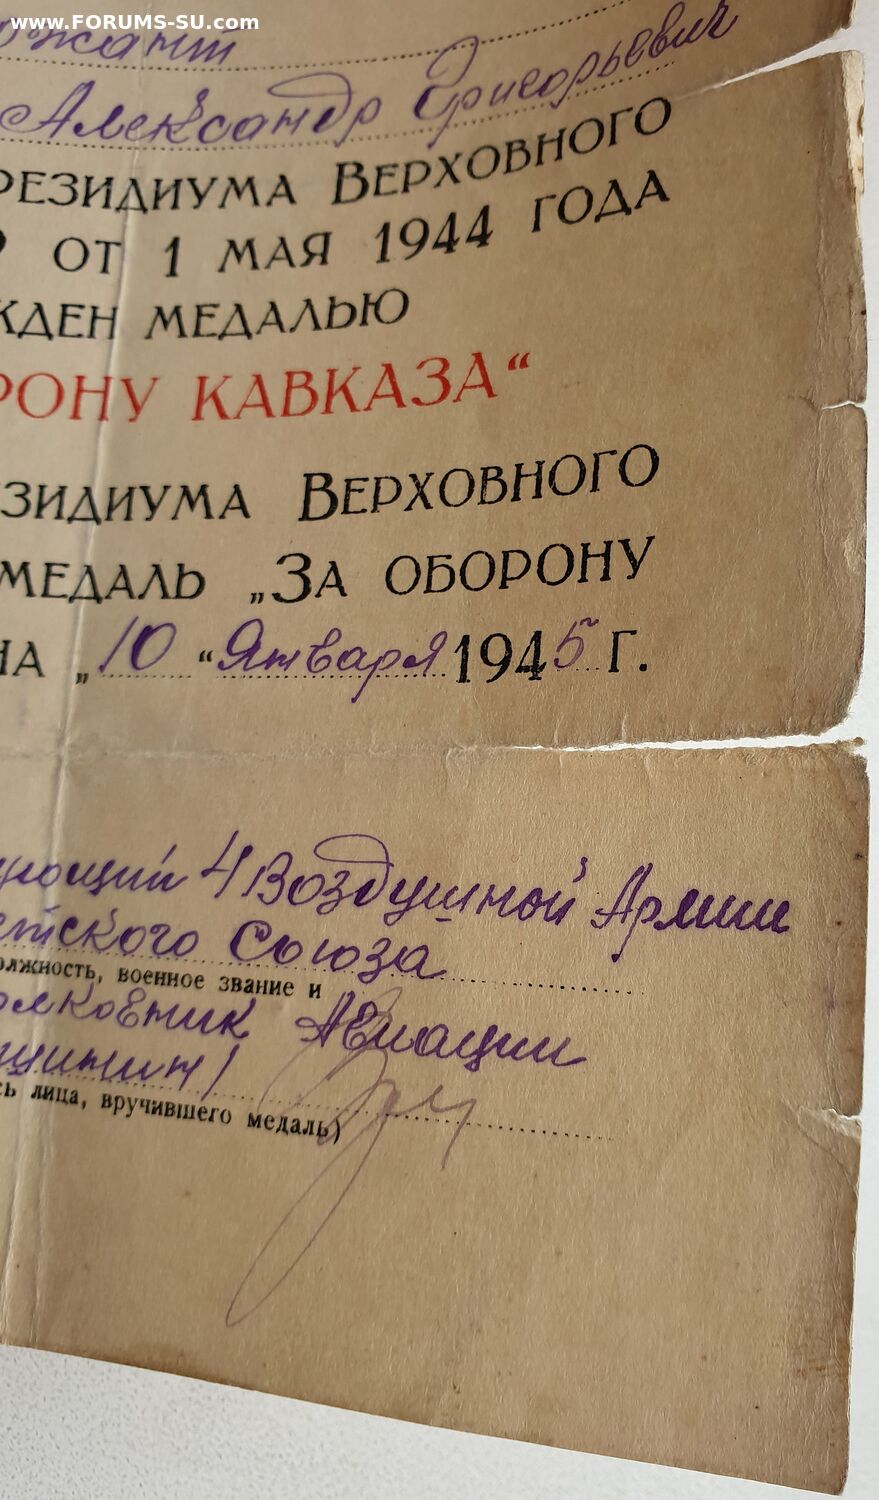 www.FORUMS-SU.com
ожант
Александр Григорьевич
РЕЗИДИУМА ВЕРХОВНОГО
Р ОТ 1 МАЯ 1944 ГОДА
ЖДЕН МЕДАЛЬЮ
РОНУ КАВКАЗА“
ЗИДИУМА ВЕРХОВНОГО
МЕДАЛЬ „ЗА ОБОРОНУ
НА „10“ Января 1945 Г.
ующий 4 Воздушной Армии
етского Союза
олжность, военное звание и
олковник Авиации
шинин/
сь лица, вручившего медаль)